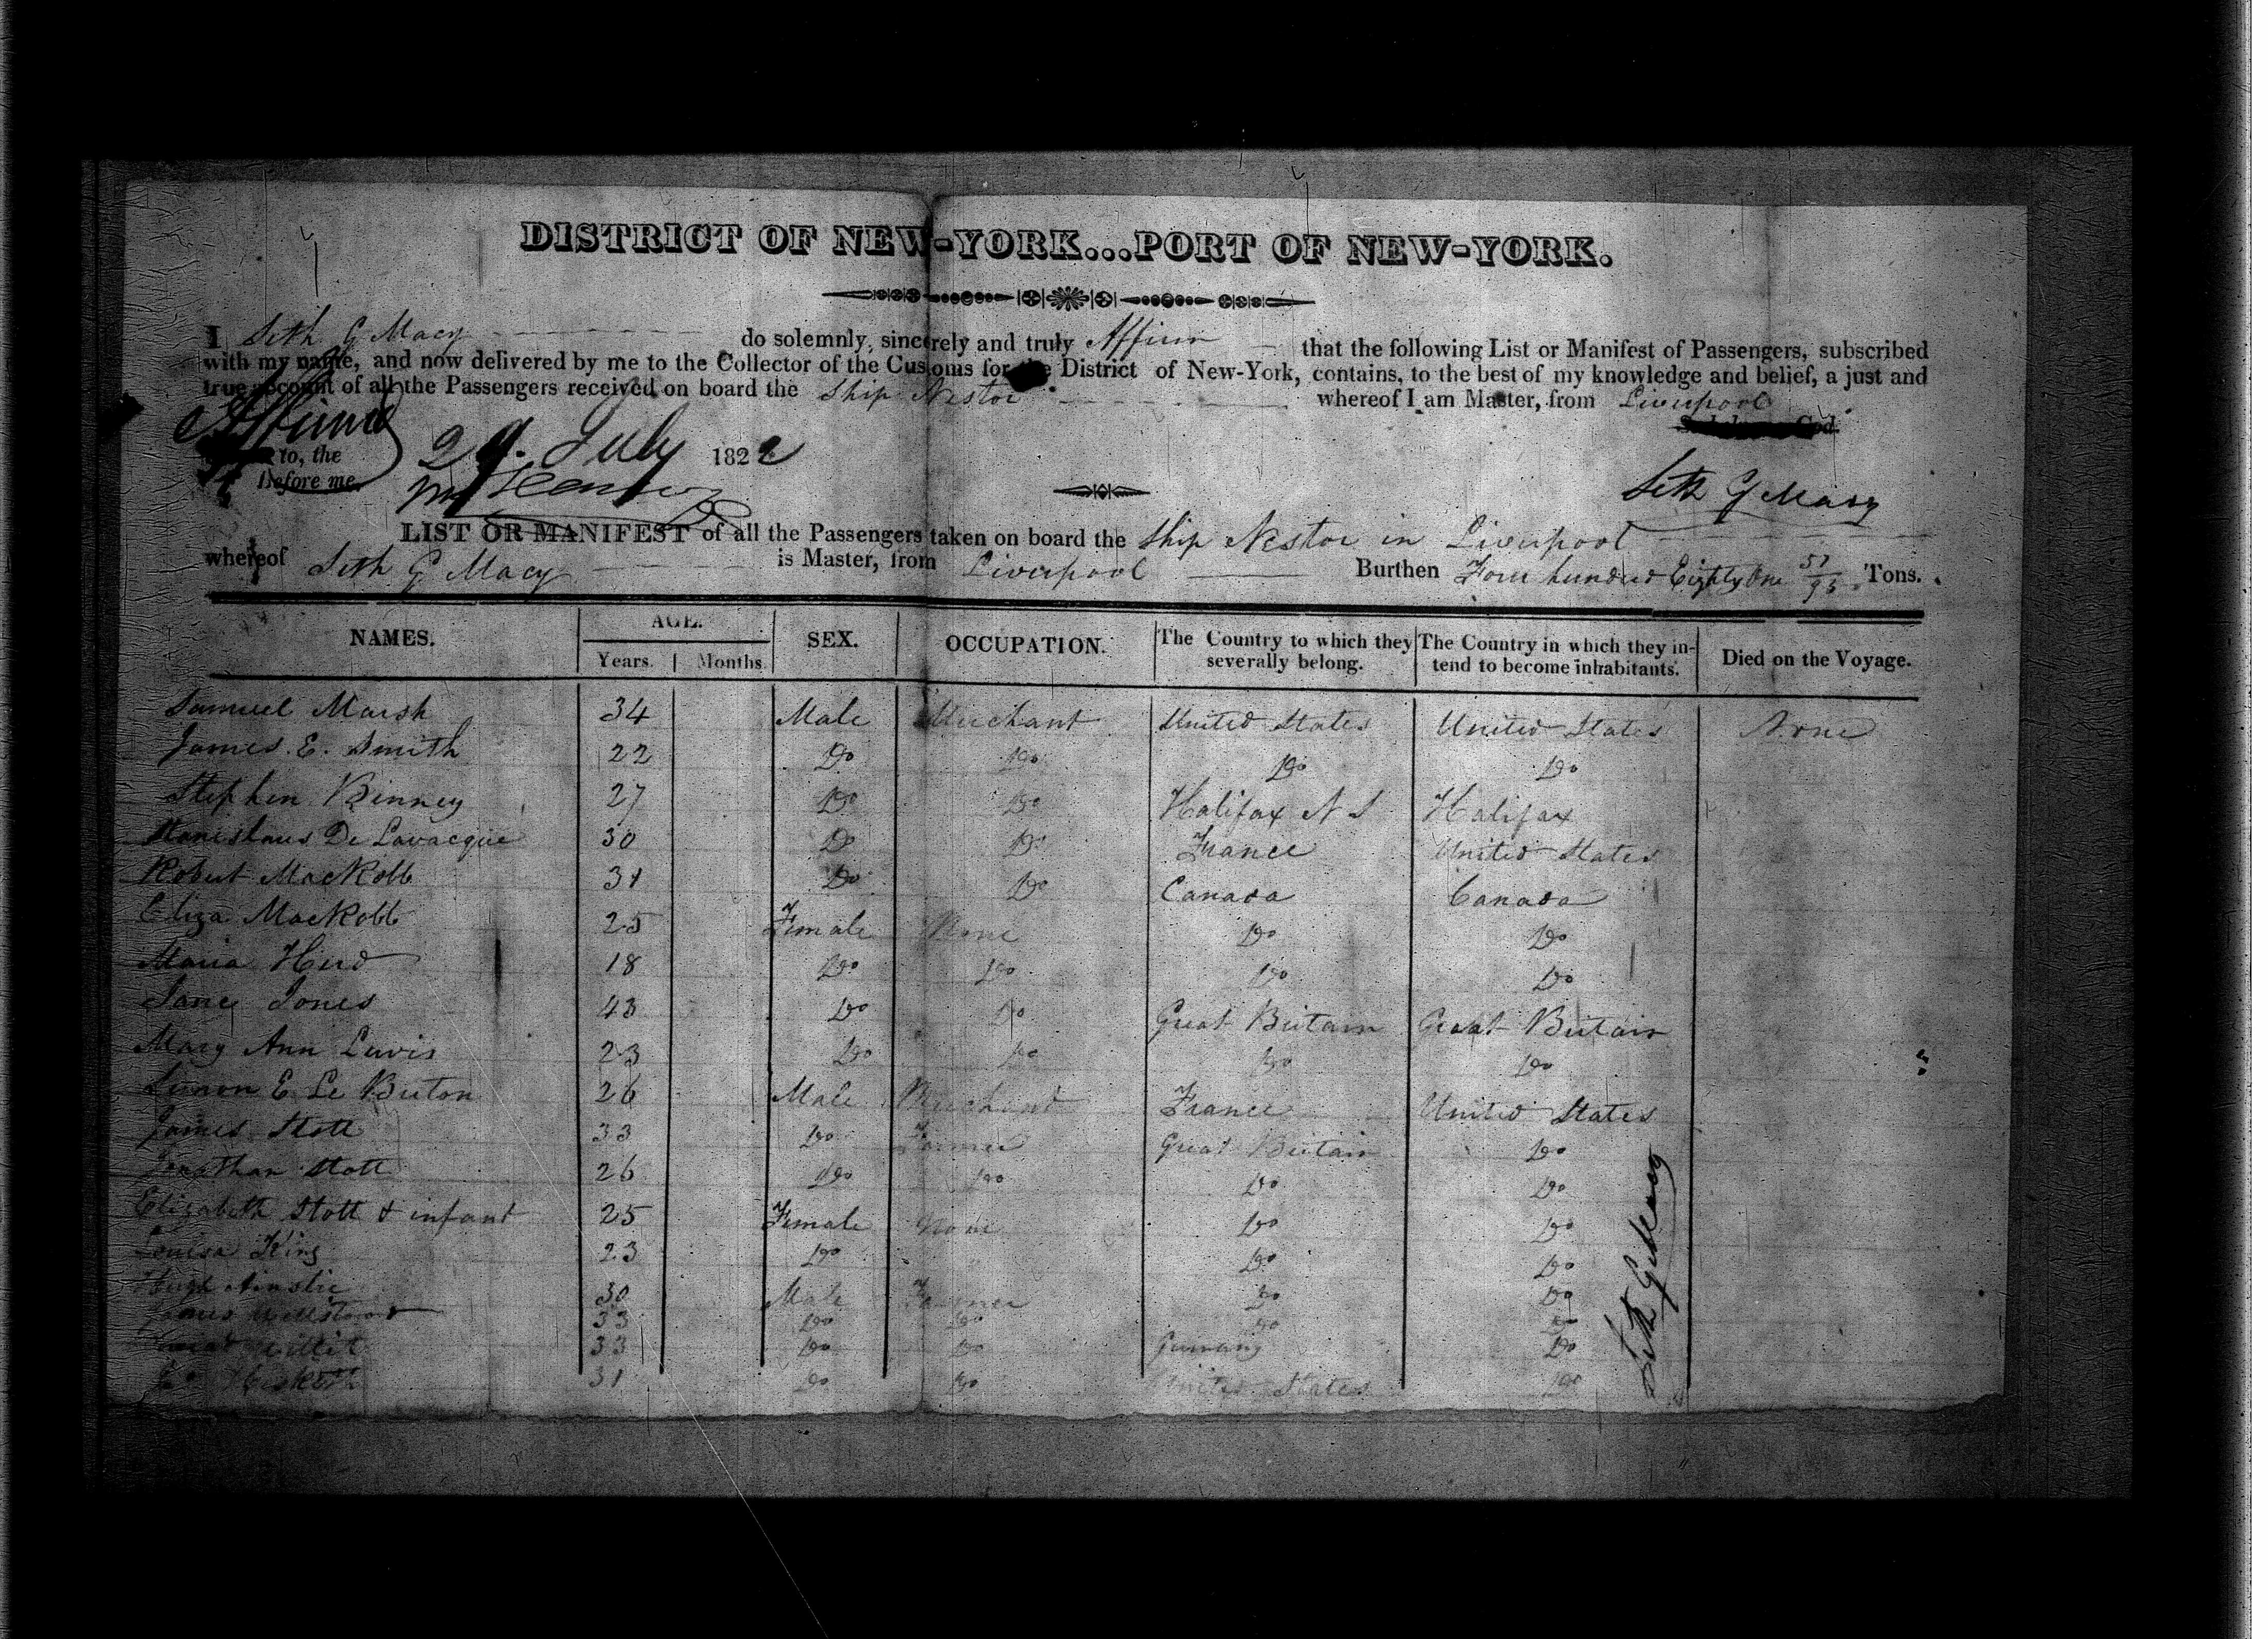 DISTRICT OF NEW-YORK...PORT OF NEW-YORK.
I Seth G Macy do solemnly, sincerely and truly Affirm that the following List or Manifest of Passengers, subscribed
with my name, and now delivered by me to the Collector of the Customs for the District of New-York, contains, to the best of my knowledge and belief, a just and
true account of all the Passengers received on board the Ship Nestor whereof I am Master, from Liverpool
Affirmed to, the 29. July 1822
Before me,
Seth G Macy
LIST OR MANIFEST of all the Passengers taken on board the Ship Nestor in Liverpool
whereof Seth G Macy is Master, from Liverpool Burthen Four hundred Eighty One 57/95 Tons.
NAMES. AGE. Years. Months. SEX. OCCUPATION. The Country to which they severally belong. The Country in which they intend to become inhabitants. Died on the Voyage.
Samuel Marsh 34 Male Merchant United States United States None
James E. Smith 22 Do Do Do Do
Stephen Binney 27 Do Do Halifax N S Halifax
Stanislaus De Lavacquie 30 Do Do France United States
Robert MacKobb 31 Do Do Canada Canada
Eliza MacKobb 25 Female None Do Do
Maria Herd 18 Do Do Do Do
Jane Jones 43 Do Do Great Britain Great Britain
Mary Ann Lewis 23 Do Do Do Do
Simon E Le Breton 26 Male Merchant France United States
James Stott 33 Do Farmer Great Britain Do
Jonathan Stott 26 Do Do Do Do
Elizabeth Stott & infant 25 Female None Do Do
Louisa King 23 Do " Do Do
Hugh Ainslie 30 Male Farmer Do Do
James 33 Do Do Do Do
33 Do Do Germany Do
31 Do Do United States Do
Seth G Macy